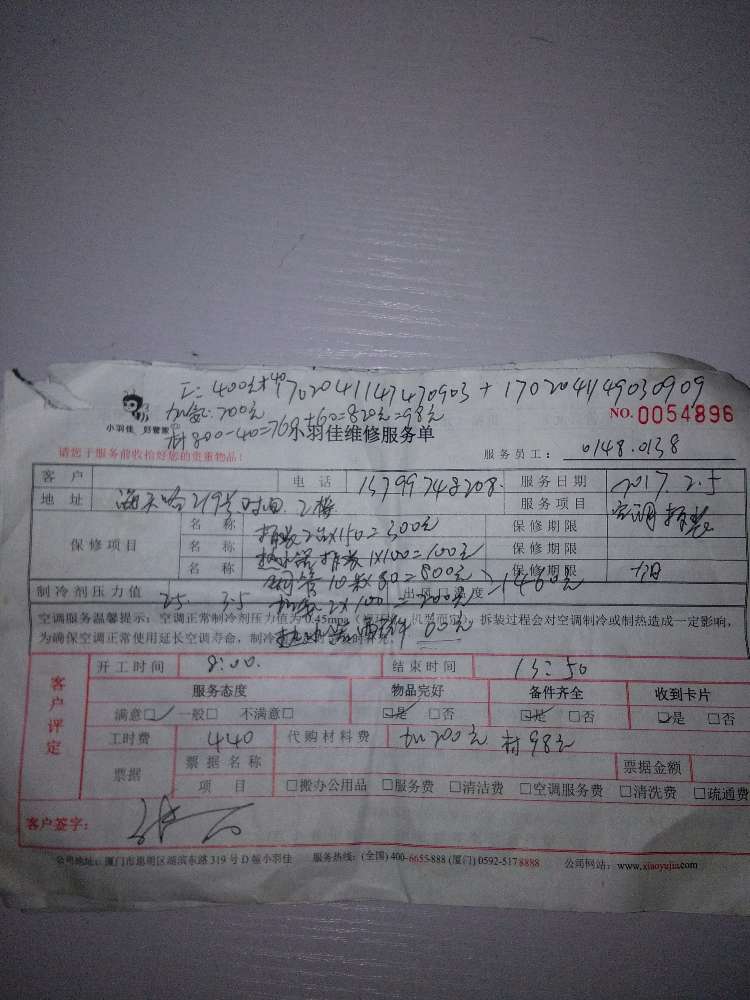 工: 400元+40 1702041147470903 + 1702041149030909
加氨: 700元
材800-40=760+60=820元=98元
小羽佳 好管家
NO. 0054896
小羽佳维修服务单
请您于服务前收拾好您的贵重物品:
服务员工: 0148.0138
客 户 电 话 13799748208 服务日期 2017.2.5
地 址 219号 2楼 服务项目 空调拆装
保修项目
名 称 拆装2台X150=300元 保修期限
名 称 热水器拆装1X100=100元 保修期限
名 称 铜管10米X80=800元 保修期限
1460元
制冷剂压力值 25. 3.5 2X100=200元 出风口温度
空调服务温馨提示: 空调正常制冷剂压力值为0.45mpa 拆装过程会对空调制冷或制热造成一定影响,
为确保空调正常使用延长空调寿命, 制冷 热水器 60元
客户评定
开工时间 8:00. 结束时间 13:50
服务态度 物品完好 备件齐全 收到卡片
满意☑ 一般□ 不满意□ ☑是 □否 ☑是 □否 ☑是 □否
工时费 440 代购材料费 加200元 材98元
票据 票据名称 票据金额
项 目 □搬办公用品 □服务费 □清洁费 □空调服务费 □清洗费 □疏通费
客户签字:
公司地址: 厦门市思明区湖滨东路319号D幢小羽佳 服务热线: (全国) 400-6655-888 (厦门) 0592-5178888 公司网站: www.xiaoyujia.com